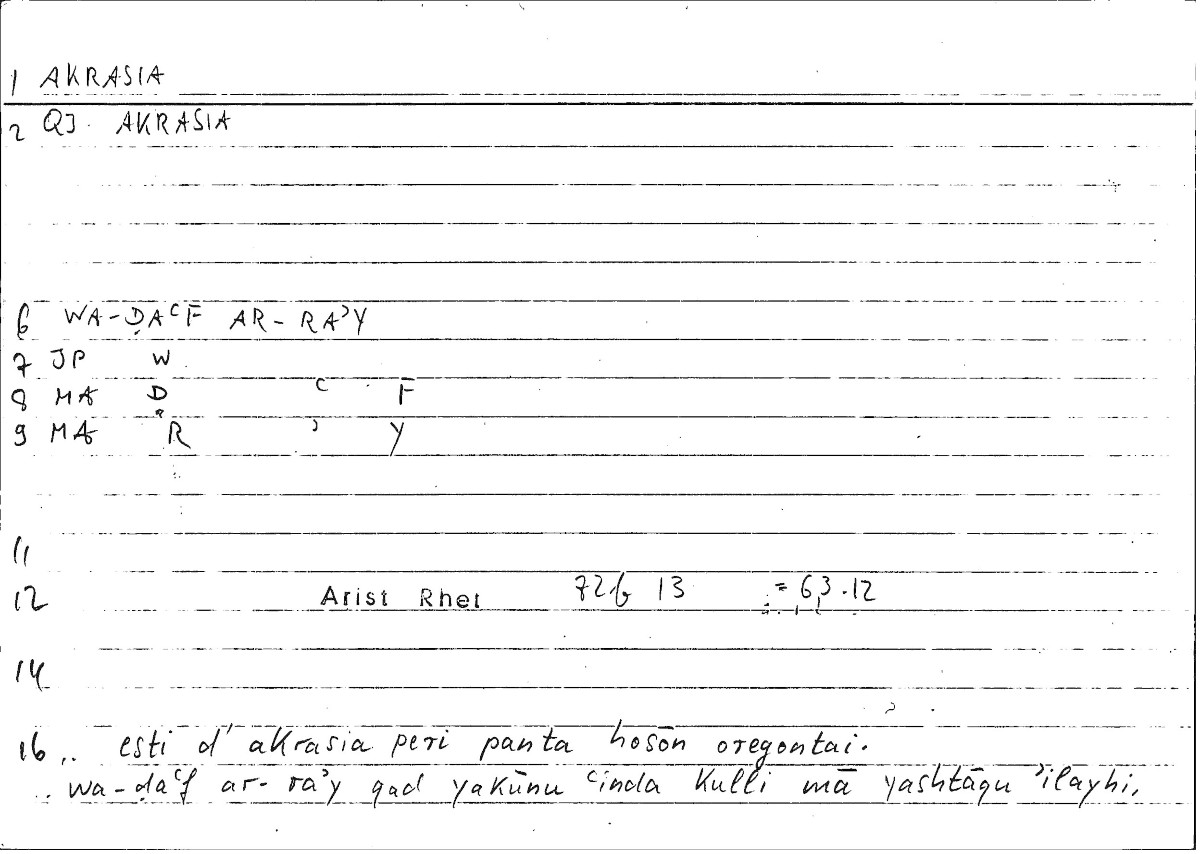 1 AKRASIA
2 QJ. AKRASIA
6 WA-ḌAʿF AR-RAʾY
7 JP W
8 MA Ḍ ʿ F
9 MA R ʾ Y
11
12 Arist Rhet 72b 13 = 63.12
14
16 .. esti d' akrasia peri panta hosōn oregontai.
.. wa-ḍaʿf ar-raʾy qad yakūnu ʿinda kulli mā yashtāqu ʾilayhi.